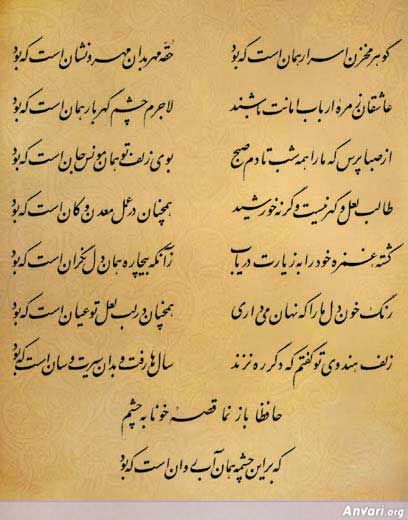 گوهر مخزن اسرار همان است که بود حقهٔ مهر بدان مهر و نشان است که بود
عاشقان زمرهٔ ارباب امانت باشند لاجرم چشم گهربار همان است که بود
از صبا پرس که ما را همه شب تا دم صبح بوی زلف تو همان مونس جان است که بود
طالب لعل و گهر نیست وگرنه خورشید همچنان در عمل معدن و کان است که بود
کشتهٔ غمزهٔ خود را به زیارت دریاب زآنکه بیچاره همان دل نگران است که بود
رنگ خون دل ما را که نهان می‌داری همچنان در لب لعل تو عیان است که بود
زلف هندوی تو گفتم که دگر ره نزند سال‌ها رفت و بدان سیرت و سان است که بود
حافظا باز نما قصهٔ خونابه چشم
که بر این چشمه همان آب روان است که بود
Anvari.org